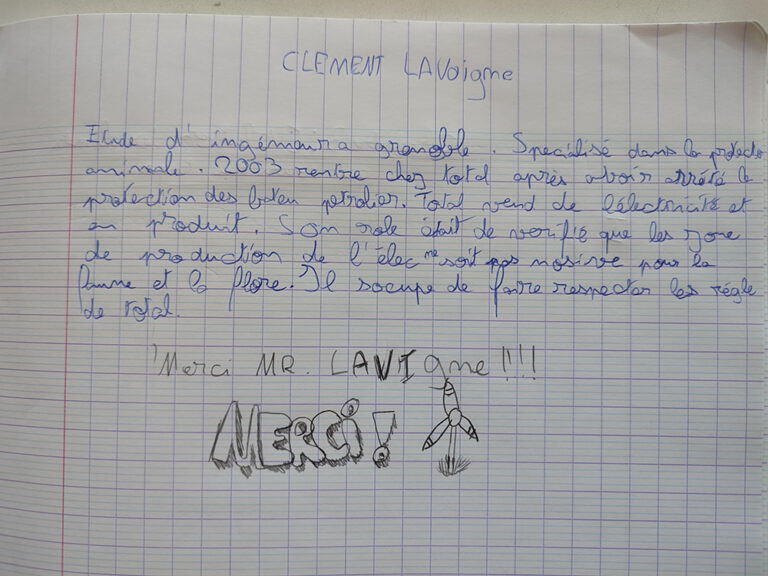 CLEMENT LAVoigne
Etude d'ingénieur a grenoble. Spécialisé dans la protectio
animale. 2003 rentre chez total après avoir arrété la
protection des bateu petrolier. Total vend de l'électricité et
en produit. Son role était de verifié que les zone
de production de l'élec ne soit pas nosive pour la
faune et la flore. Il socupe de faire respecter les régle
de total.
Merci MR. LAVIgne !!!!
MERCI !